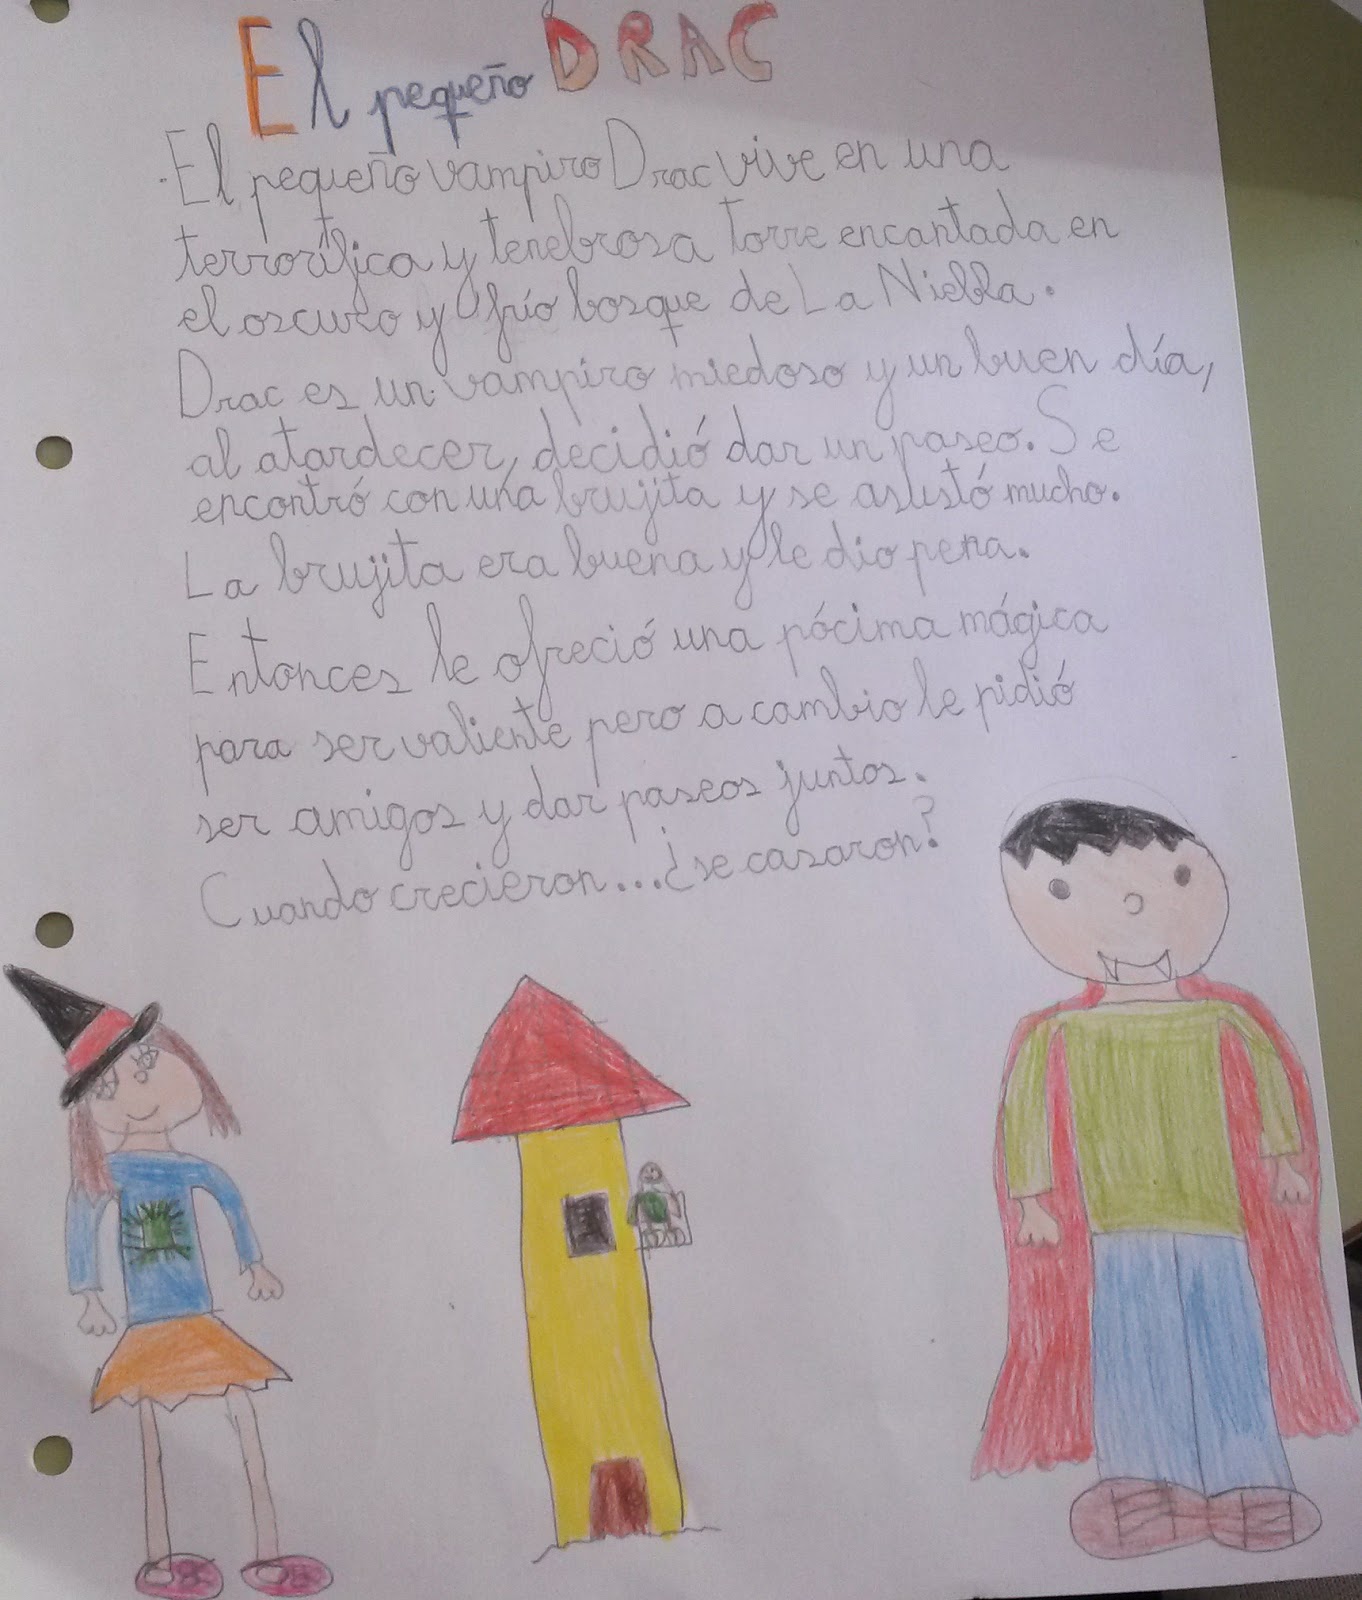 El pequeño DRAC
El pequeño vampiro Drac vive en una
terrorífica y tenebrosa torre encantada en
el oscuro y frío bosque de La Niebla.
Drac es un vampiro miedoso y un buen día,
al atardecer, decidió dar un paseo. Se
encontró con una brujita y se asustó mucho.
La brujita era buena y le dio pena.
Entonces le ofreció una pócima mágica
para ser valiente pero a cambio le pidió
ser amigos y dar paseos juntos.
Cuando crecieron... ¿se casaron?